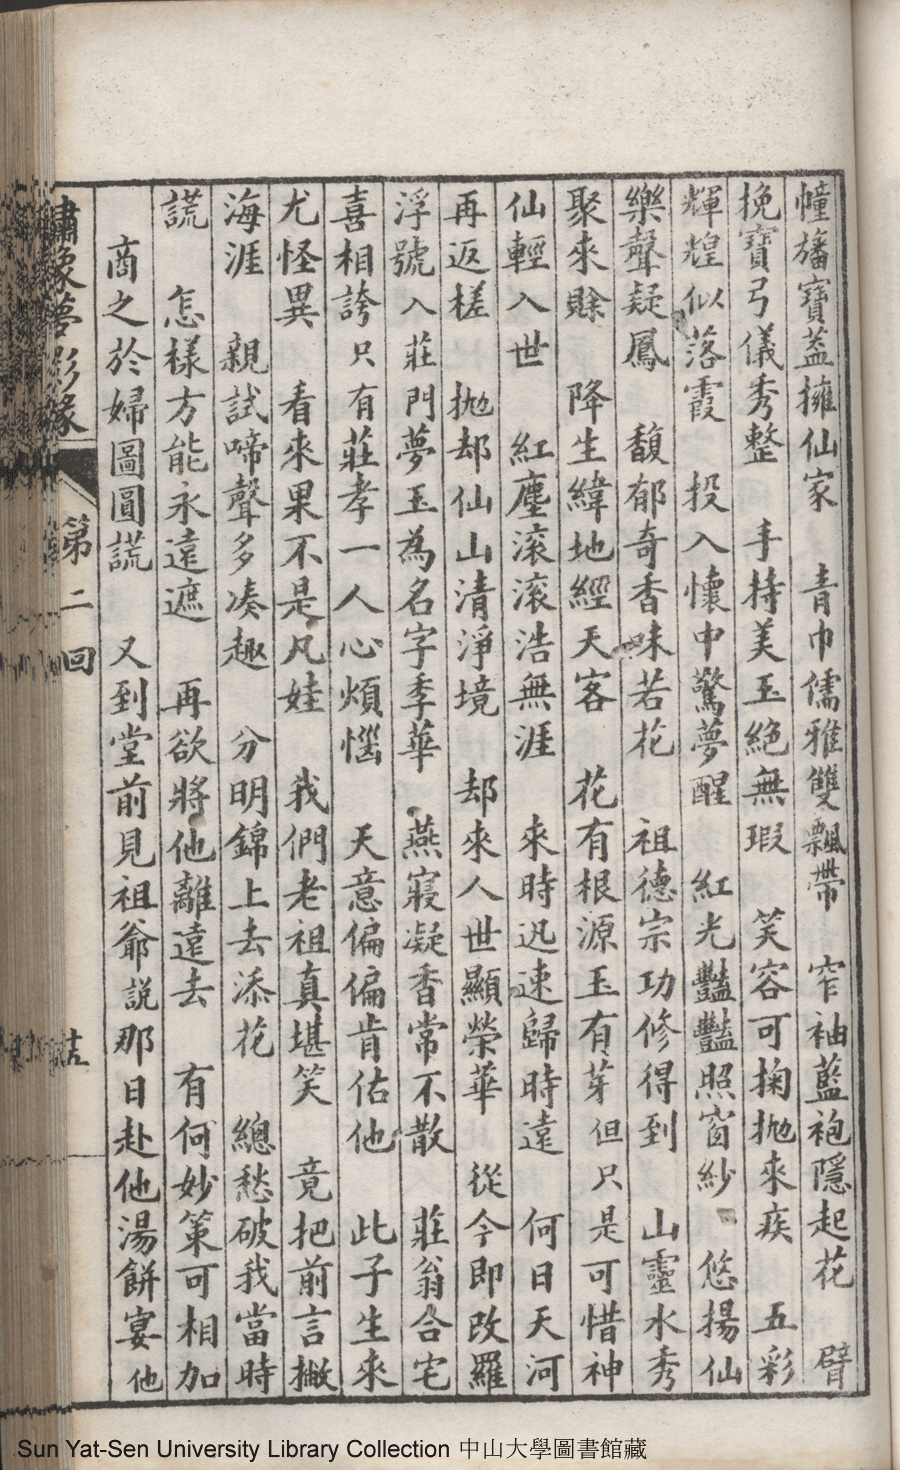 幢旛寶蓋擁仙家　青巾儒雅雙飄帶　窄袖藍袍隱起花　臂
挽寶弓儀秀整　手持美玉絕無瑕　笑容可掬拋來疾　五彩
輝煌似落霞　投入懷中驚夢醒　紅光豔豔照窗紗　悠揚仙
樂聲疑鳳　馥郁奇香味若花　祖德宗功修得到　山靈水秀
聚來賒　降生緯地經天客　花有根源玉有芽但只是可惜神
仙輕入世　紅塵滾滾浩無涯　來時迅速歸時遠　何日天河
再返槎　拋却仙山清淨境　却來人世顯榮華　從今即改羅
浮號入莊門夢玉為名字季華　燕寢凝香常不散　莊翁合宅
喜相誇只有莊孝一人心煩惱　天意偏偏肯佑他　此子生來
尤怪異　看來果不是凡娃　我們老祖真堪笑　竟把前言撇
海涯　親試啼聲多凑趣　分明錦上去添花　總愁破我當時
謊　怎樣方能永遠遮　再欲將他離遠去　有何妙策可相加
商之於婦圖圓謊　又到堂前見祖爺說那日赴他湯餅宴他
繡像夢影緣　第二回　十五
Sun Yat-Sen University Library Collection 中山大學圖書館藏